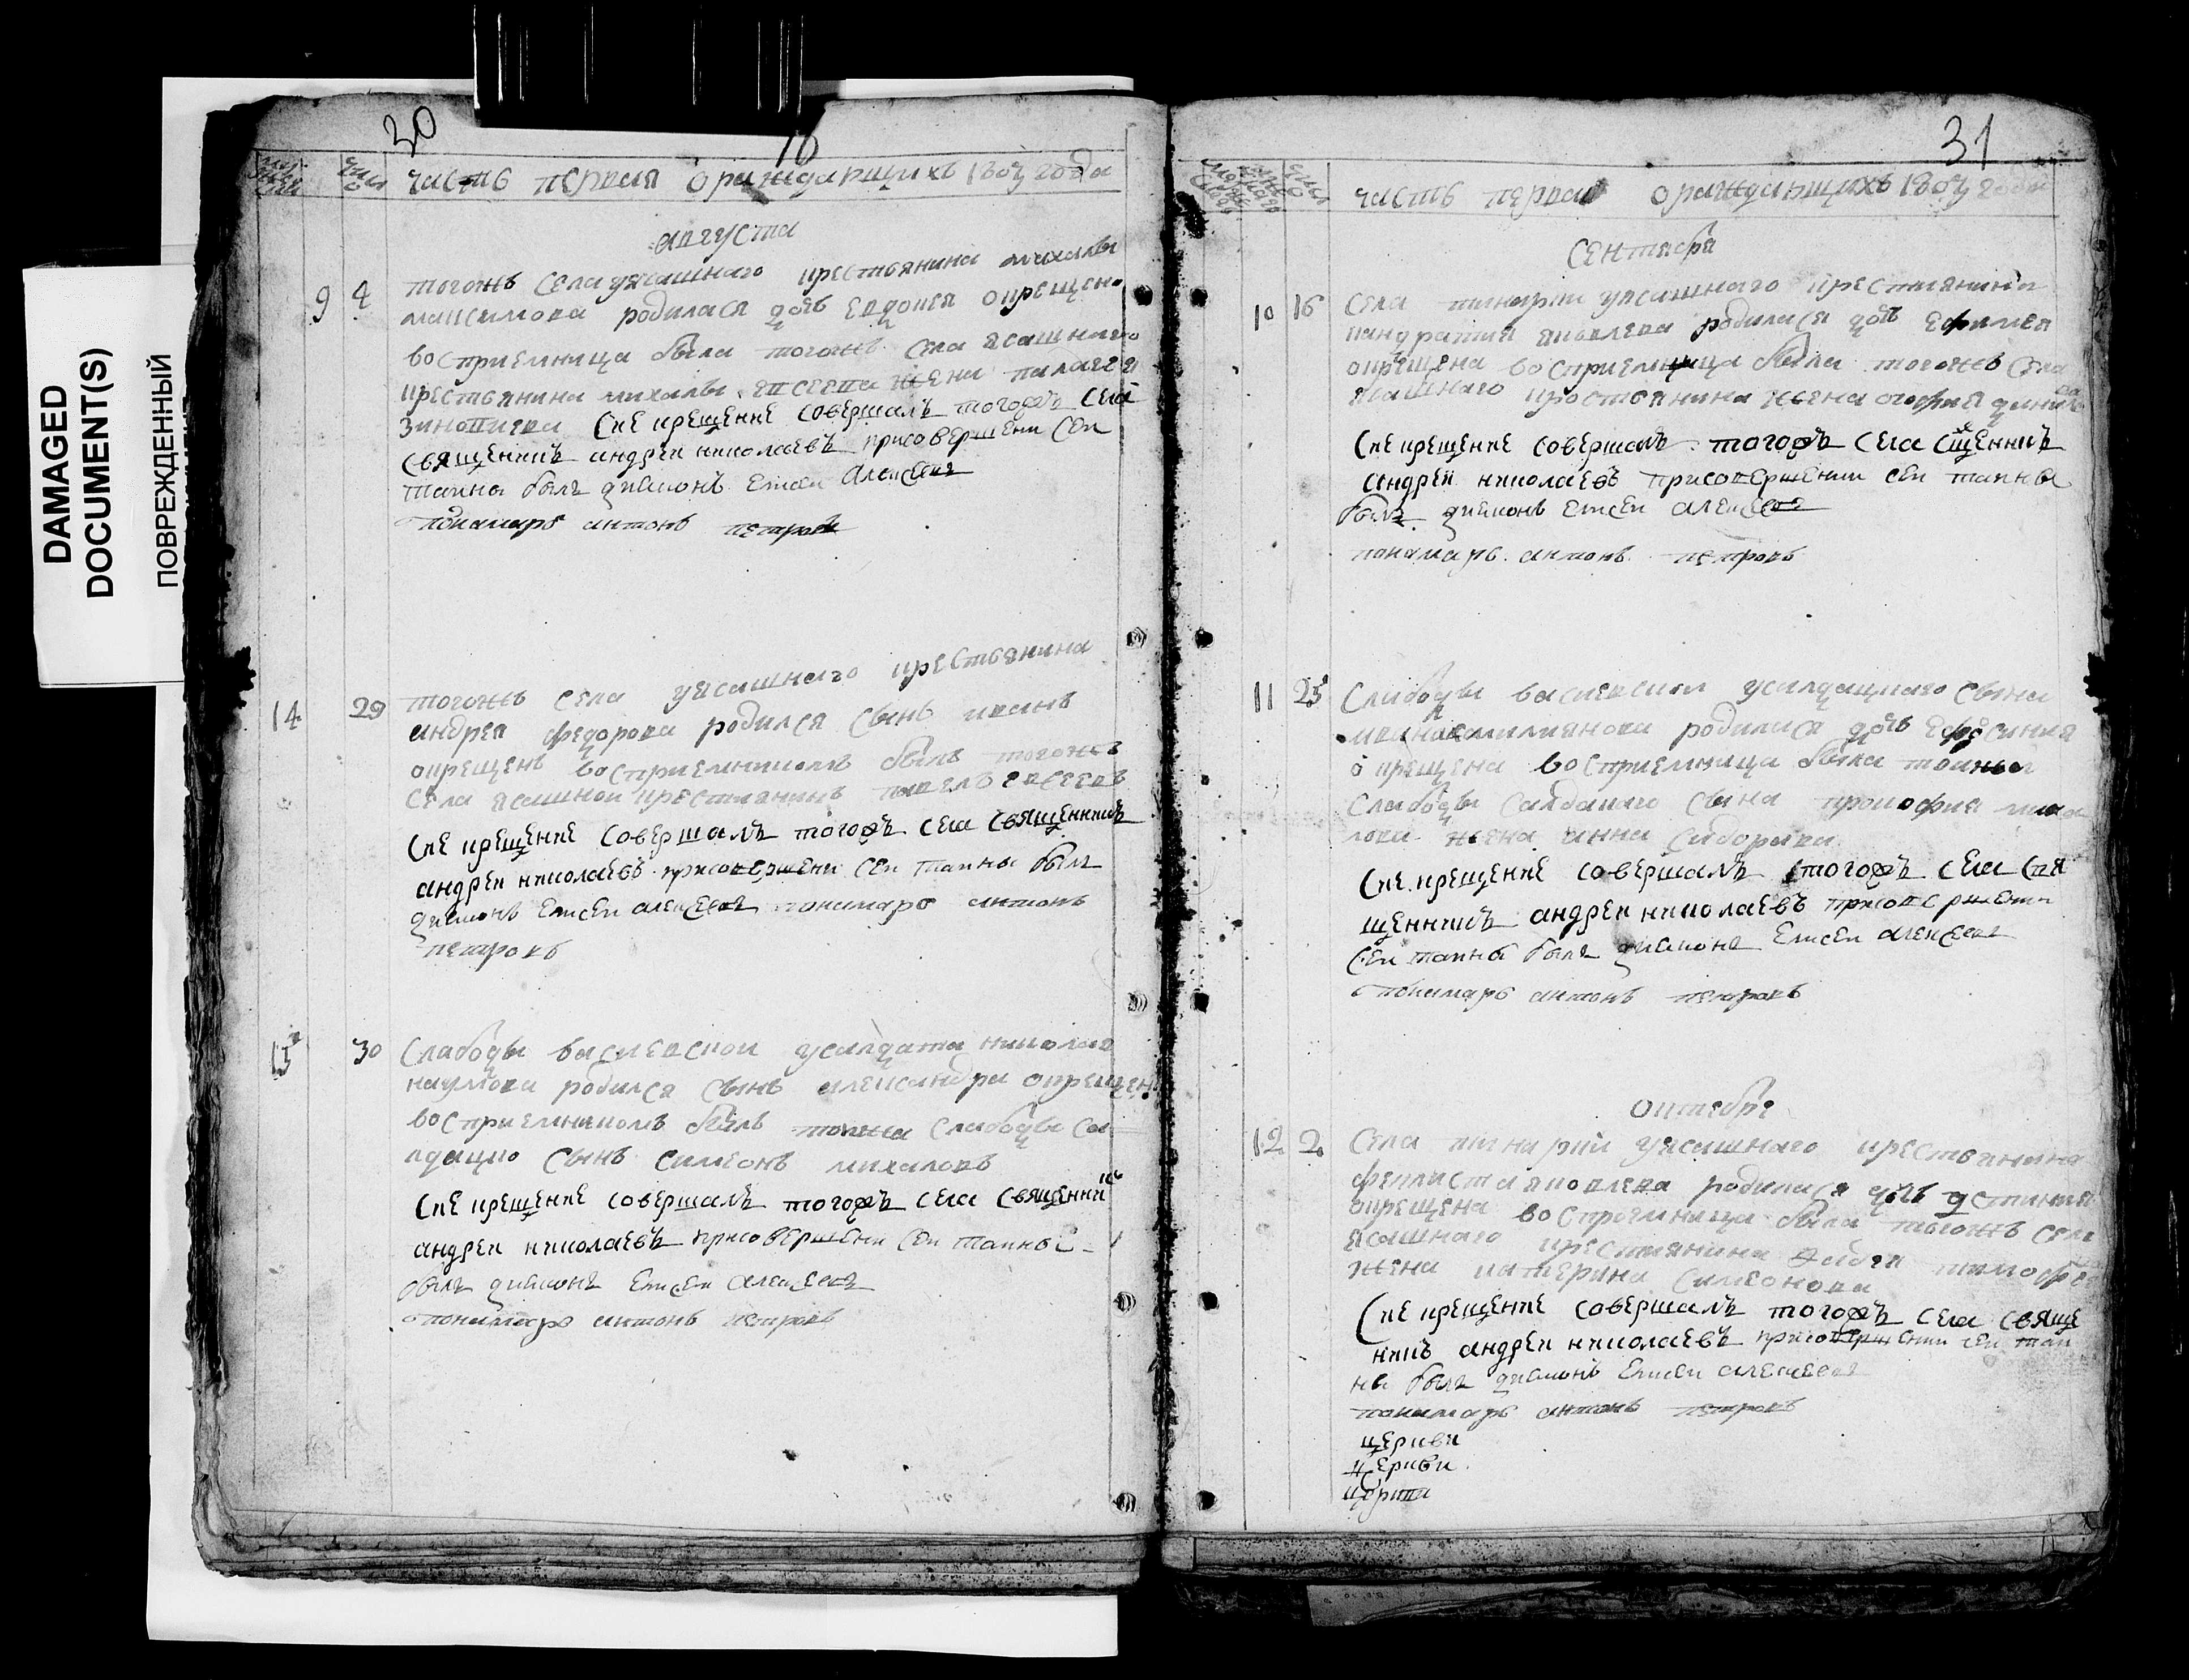 DAMAGED
DOCUMENT(S)
ПОВРЕЖДЕННЫЙ
30
10
числ
часть первая о раждающихъ 1807 года
августа
9 4 тогожъ села уясашнаго крестьянина михаилы
максимова родилася дочь Евдокея окрещена
восприемница была тогожъ села ясашнаго
крестьянина михаилы жена палагея
Сие крещение совершалъ тогожъ села
священникъ андреи николаевъ присовершени сеи
таины былъ диаконъ Елисеи Алексеевъ
понамарь антонъ петровъ
14 29 тогожъ села уясашнаго крестьянина
андрея федорова родился сынъ иванъ
окрещенъ восприемникомъ былъ тогожъ
села ясашнои крестьянинъ павелъ евсеевъ
Сие крещение совершалъ тогожъ села священникъ
андреи николаевъ присовершени сеи таины былъ
диаконъ Елисеи алексеевъ понамарь антонъ
петровъ
15 30 Слабоды василевскои усалдата николая
наумова родился сынъ александра окрещенъ
восприемникомъ былъ тояжа слабоды са
лдацко сынъ симеонъ михаловъ
Сие крещение совершалъ тогожъ села священни
къ
андреи николаевъ присовершени сеи таины
былъ диаконъ Елисеи алексеевъ
понамарь антонъ петровъ
31
число
часть первая о раждающихъ 1807 года
Сентября
10 16 Села уясашнаго крестиянина
кандратия яковлева родилася дочь Ефимея
окрещена восприемница была тогожъ села
ясашнаго кростьянина жена
Сие крещение совершалъ тогожъ села сщенникъ
андреи николаевъ присовершении сеи таины
былъ диаконъ Елисеи алексеевъ
понамарь антонъ петровъ
11 25 Слабоды василевскои усалдацкаго сына
ивана родилася дочь Ефросиния
окрещена восприемница была тоижъ
слабоды салдацкаго сына прокофия миха
лова жена анна сидорава
Сие крещение совершалъ тогожъ села свя
щенникъ андреи николаевъ присовершени
сеи таины былъ диаконъ Елисеи алексеевъ
понамарь антонъ петровъ
Октебре
12 2 Села уясашнаго крестьянина
яковлева родилася дочь устиния
окрещена восприемница была тогожъ села
ясашнаго крестиянина тимофее
жена катерина симеонова
Сие крещение совершалъ тогожъ села свяще
никъ андреи николаевъ присовершении сеи таи
ны былъ диаконъ Елисеи алексеевъ
понамарь антонъ петровъ
церкви
церкви